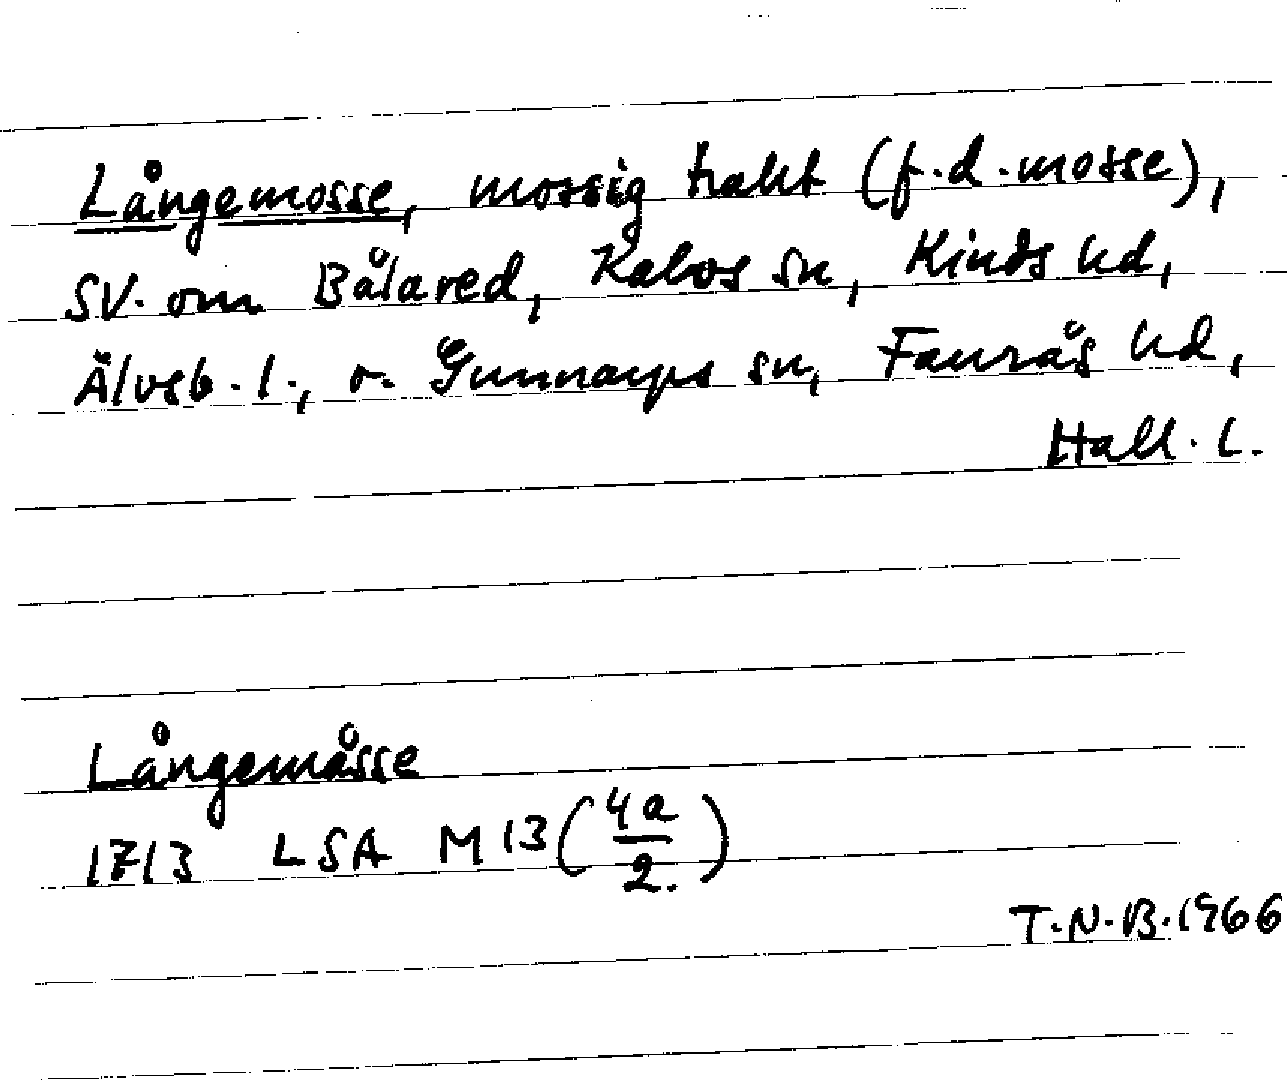 Långemosse, mossig trakt (f.d. mosse),
SV. om Bålared, Kalvs sn, Kinds hd,
Älvsb. l., o. Gunnarps sn, Faurås hd,
Hall. l.
Långemåsse
1713 LSA M13 (4a/2.)
T.N.B. 1966